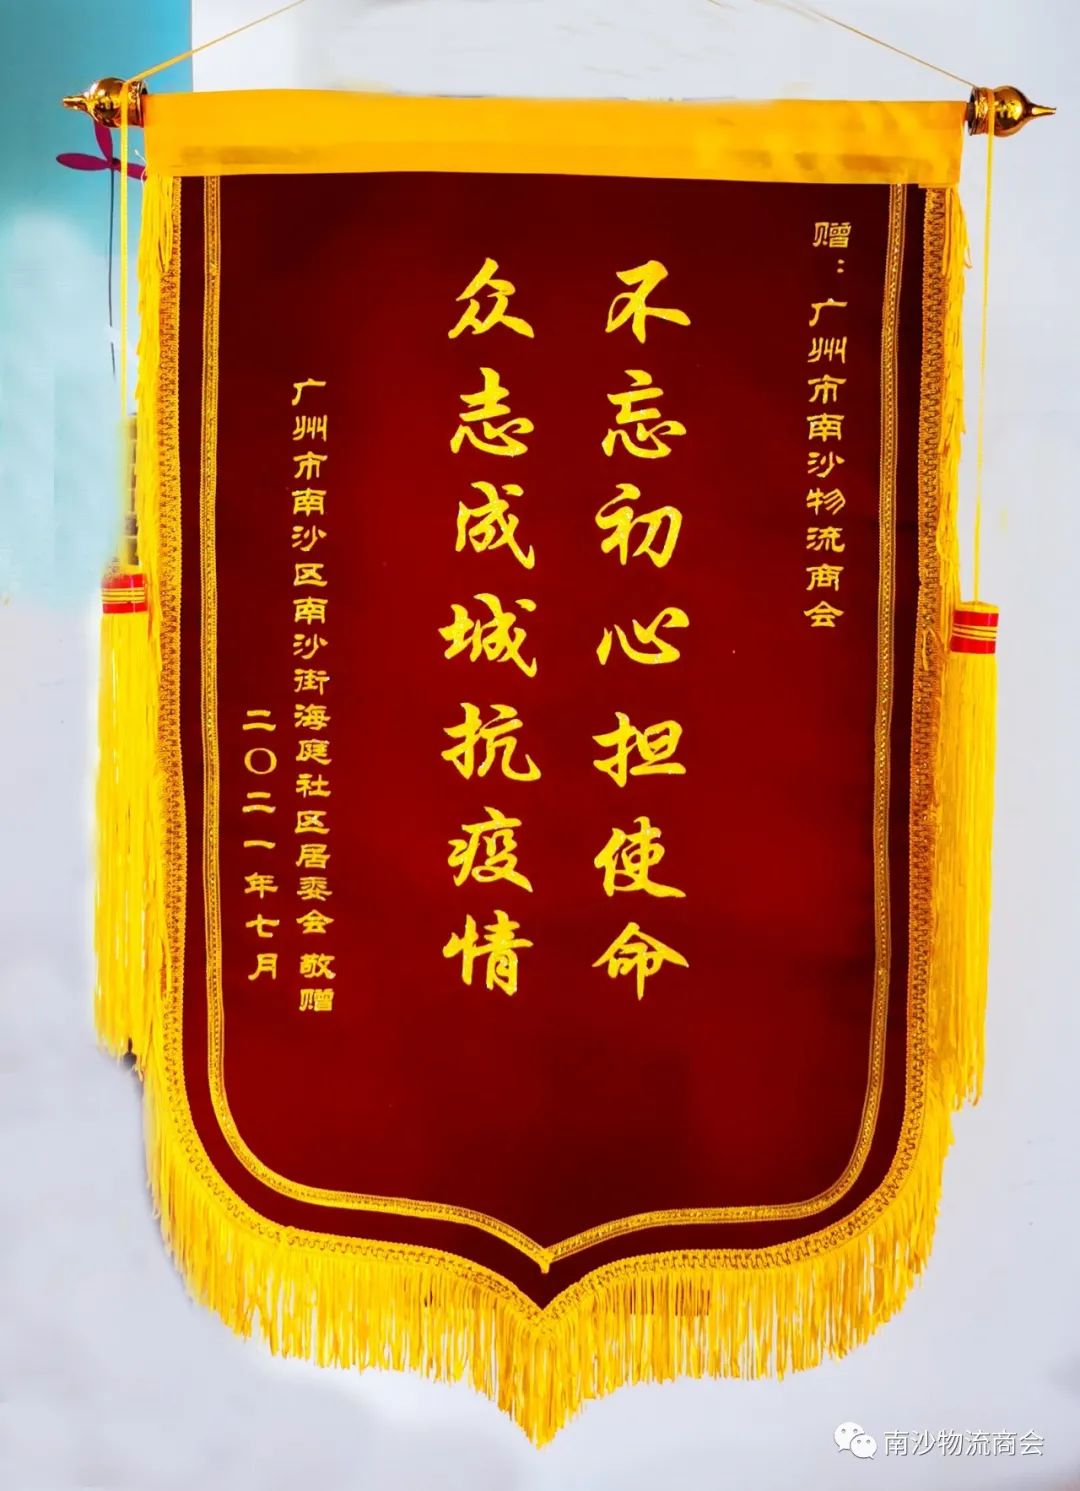 赠：广州市南沙物流商会
不忘初心担使命
众志成城抗疫情
广州市南沙区南沙街海庭社区居委会 敬赠
二〇二一年七月
南沙物流商会